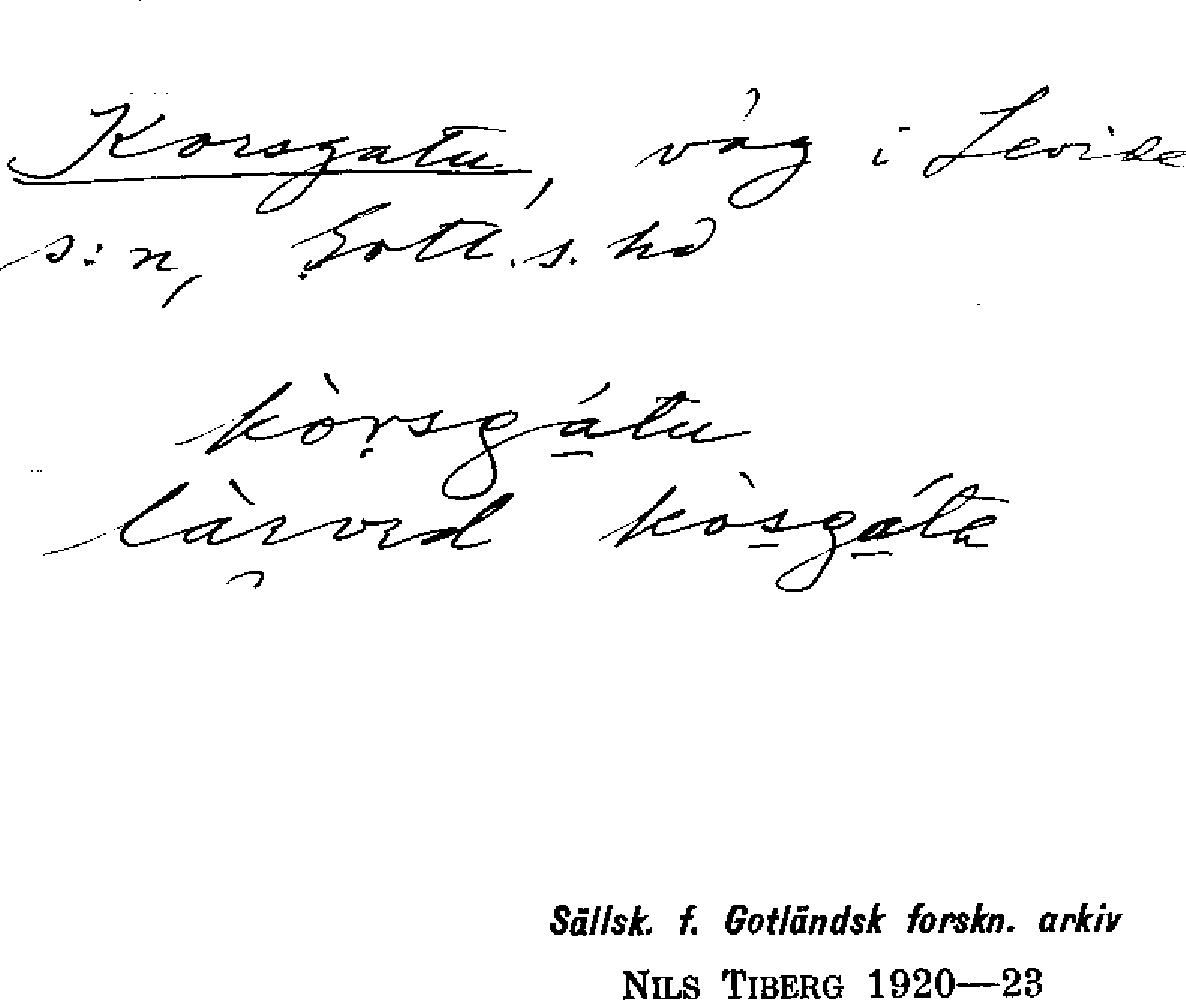 Korsgatu, väg i Levide
s:n, Gotl. s. hd
kòrsgátu
kòsgáta
Sällsk. f. Gotländsk forskn. arkiv
NILS TIBERG 1920—23